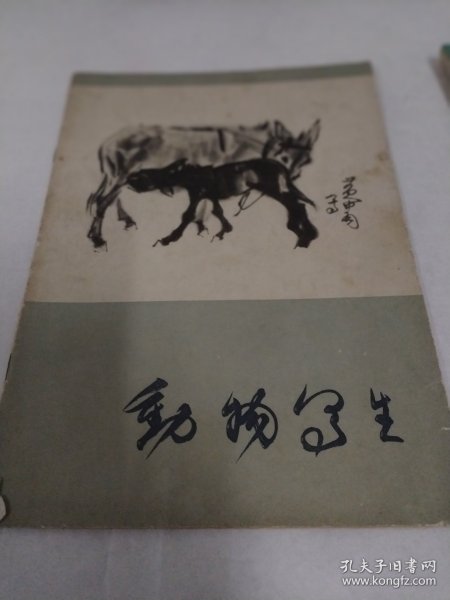 動物写生
孔夫子旧书网
www.kongfz.com